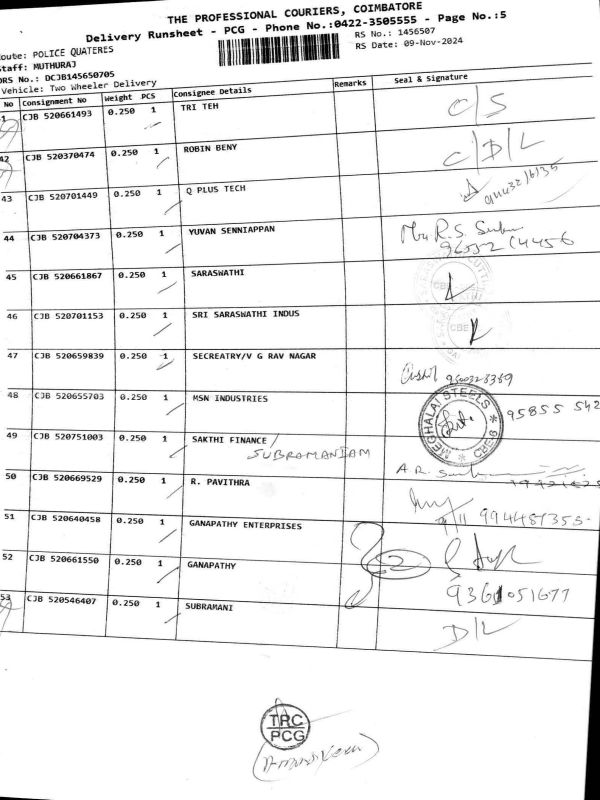 THE PROFESSIONAL COURIERS, COIMBATORE
Delivery Runsheet - PCG - Phone No.:0422-3505555 - Page No.:5
RS No.: 1456507
RS Date: 09-Nov-2024
oute: POLICE QUATERES
taff: MUTHURAJ
DRS No.: DCJB145650705
Vehicle: Two Wheeler Delivery
No Consignment No Weight PCS Consignee Details Remarks Seal & Signature
1 CJB 520661493 0.250 1 TRI TEH C/S
42 CJB 520370474 0.250 1 ROBIN BENY C/D/L
43 CJB 520701449 0.250 1 Q PLUS TECH
44 CJB 520704373 0.250 1 YUVAN SENNIAPPAN R.S.
45 CJB 520661867 0.250 1 SARASWATHI
46 CJB 520701153 0.250 1 SRI SARASWATHI INDUS
CBE
47 CJB 520659839 0.250 1 SECREATRY/V G RAV NAGAR
48 CJB 520655703 0.250 1 MSN INDUSTRIES
MEGHALAI STEELS CBE6
95855 542
49 CJB 520751003 0.250 1 SAKTHI FINANCE /
SUBRAMANIAM
A.R.
50 CJB 520669529 0.250 1 R. PAVITHRA
51 CJB 520640458 0.250 1 GANAPATHY ENTERPRISES 2
52 CJB 520661550 0.250 1 GANAPATHY
53 CJB 520546407 0.250 1 SUBRAMANI D/L
TRC
PCG